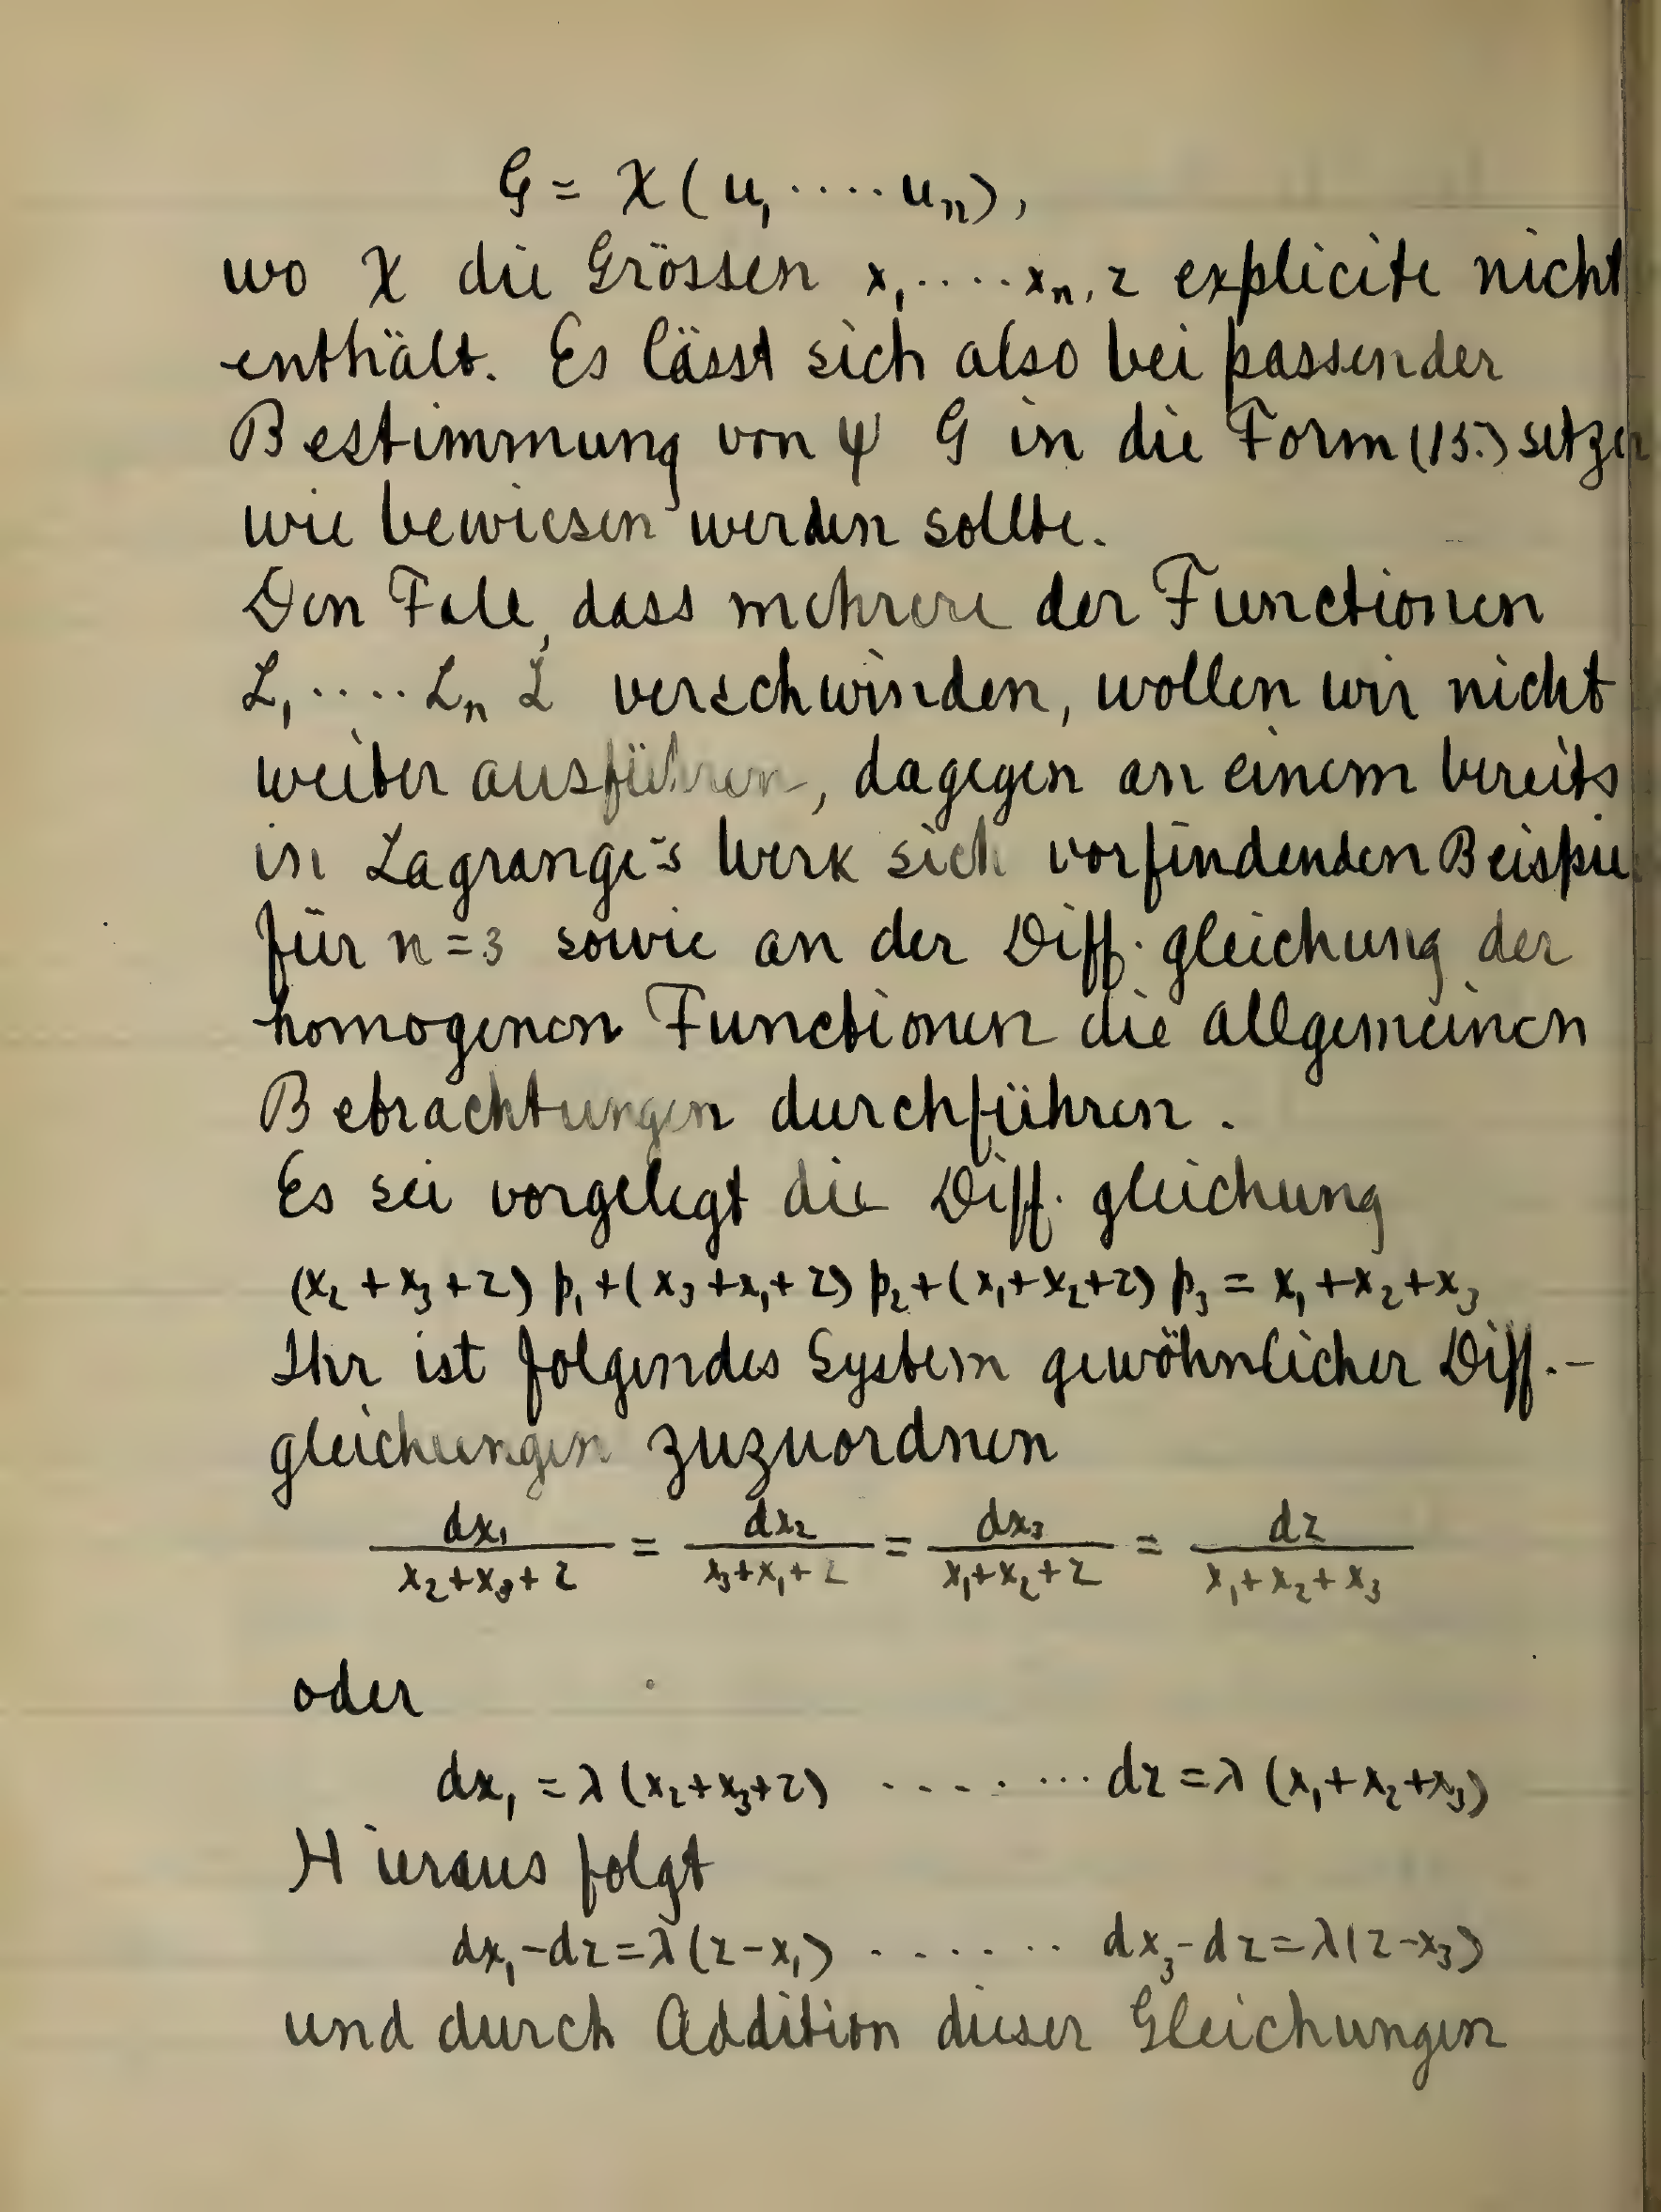 G = χ(u₁ ····· uₙ),
wo χ die Grössen x₁ ····· xₙ, z explicite nicht
enthält. Es lässt sich also bei passender
Bestimmung von ψ G in die Form (15.) setzen
wie bewiesen werden sollte.
Den Fall, dass mehrere der Functionen
L₁ ····· Lₙ L verschwinden, wollen wir nicht
weiter ausführen, dagegen an einem bereits
in Lagrange's Werk sich vorfindenden Beispiel
für n = 3 sowie an der Diff. gleichung der
homogenen Functionen die allgemeinen
Betrachtungen durchführen.
Es sei vorgelegt die Diff. gleichung
(x₂ + x₃ + z) p₁ + (x₃ + x₁ + z) p₂ + (x₁ + x₂ + z) p₃ = x₁ + x₂ + x₃
Ihr ist folgendes System gewöhnlicher Diff.-
gleichungen zuzuordnen
dx₁/(x₂ + x₃ + z) = dx₂/(x₃ + x₁ + z) = dx₃/(x₁ + x₂ + z) = dz/(x₁ + x₂ + x₃)
oder
dx₁ = λ (x₂ + x₃ + z) ········ dz = λ (x₁ + x₂ + x₃)
Hieraus folgt
dx₁ - dz = λ (z - x₁) ········ dx₃ - dz = λ (z - x₃)
und durch Addition dieser Gleichungen